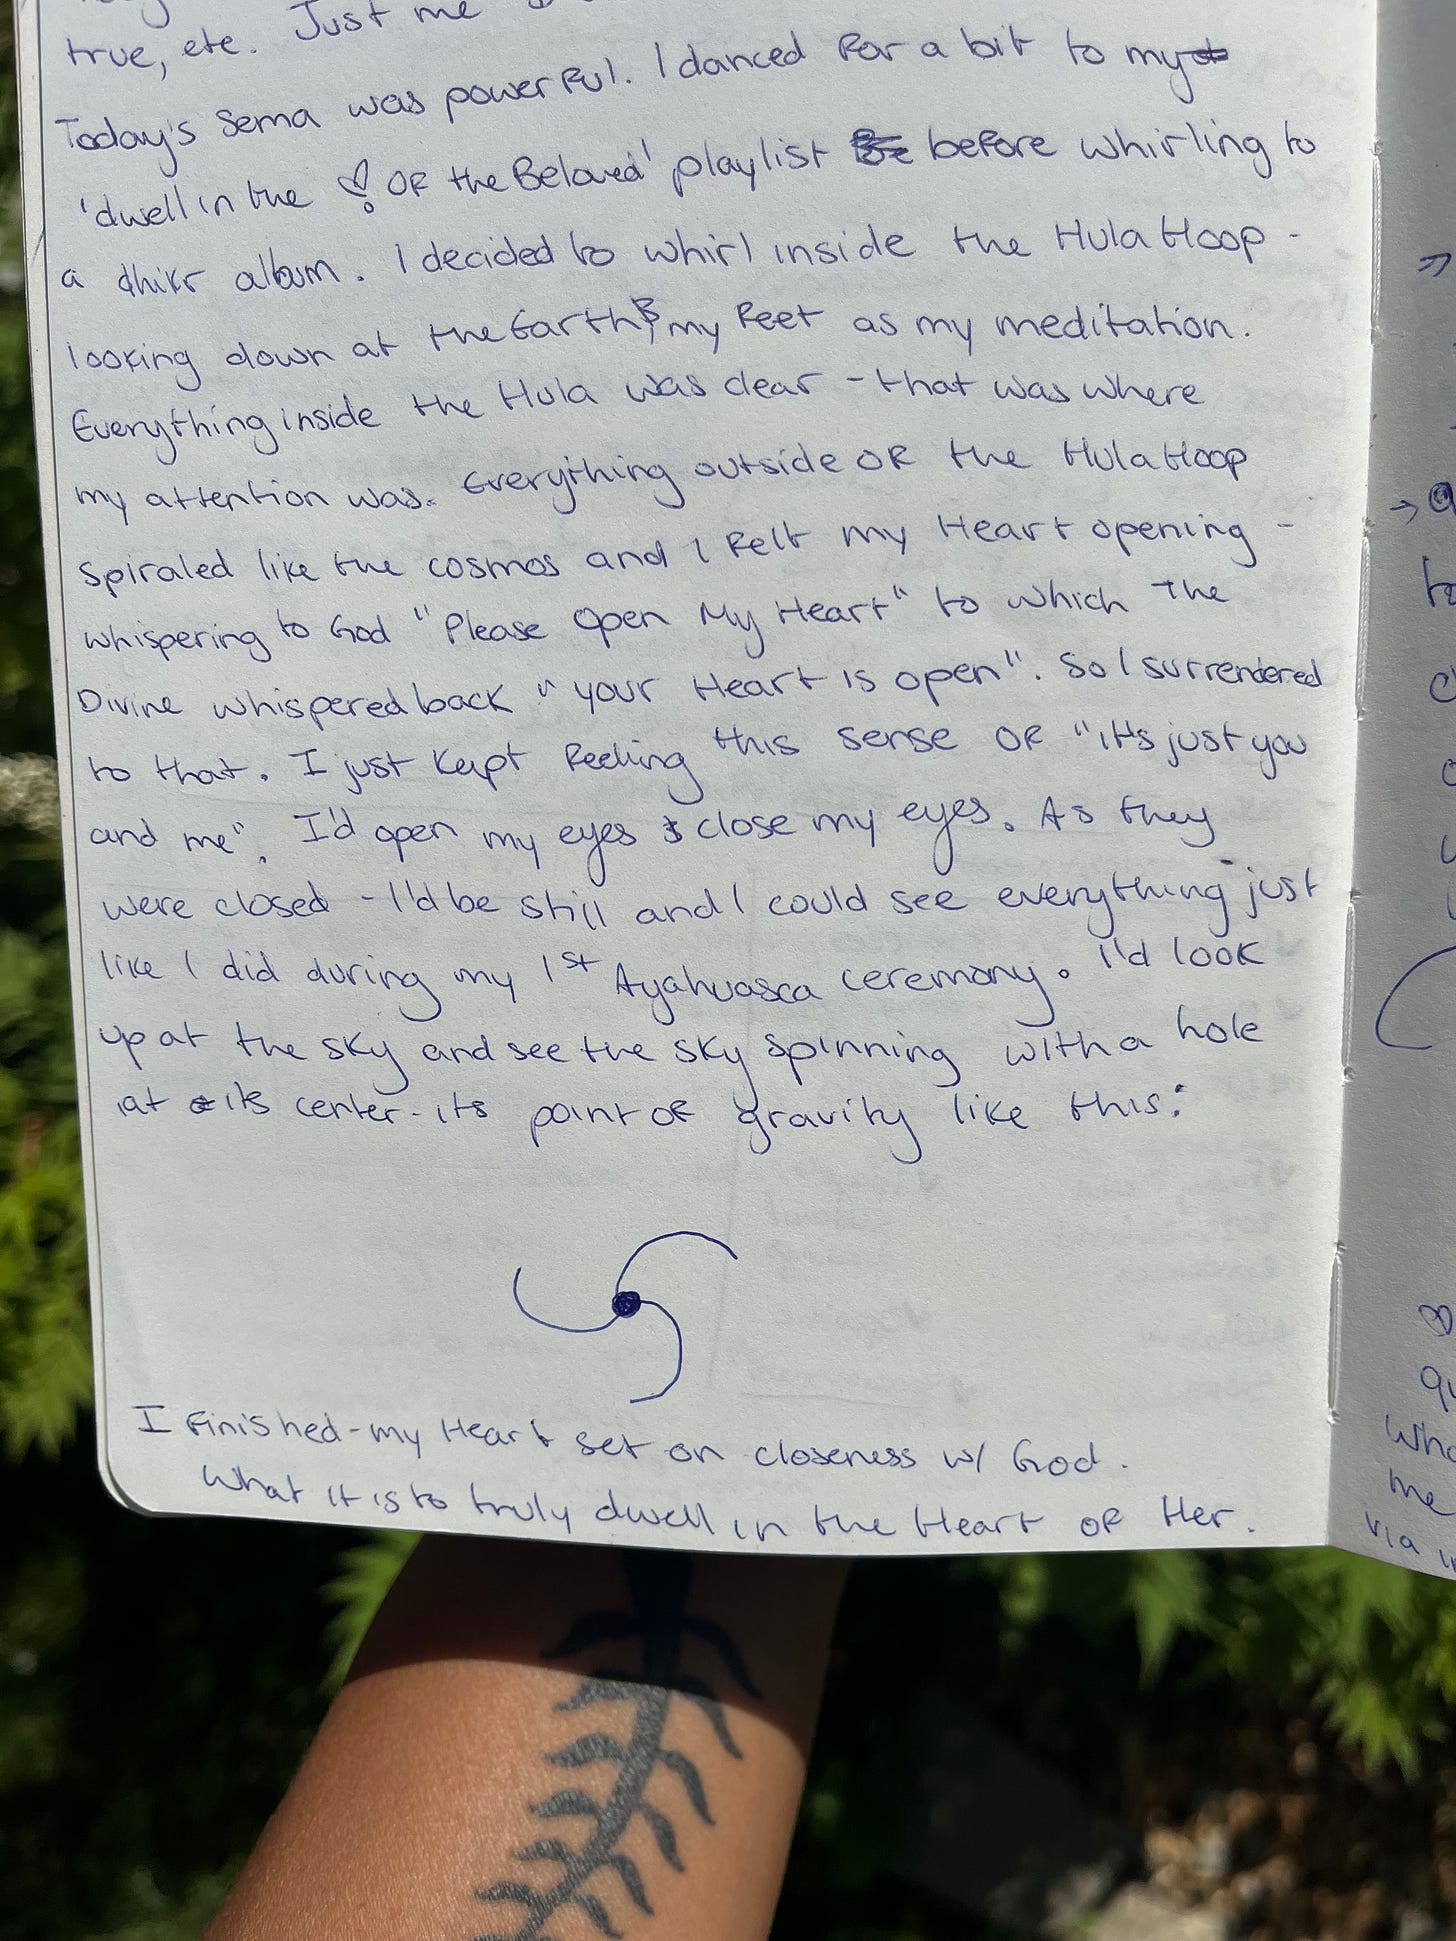 true, etc. Just me
Today's Sema was powerful. I danced for a bit to my
'dwell in the ♡ of the Beloved' playlist before whirling to
a dhikr album. I decided to whirl inside the Hula Hoop -
looking down at the Earth & my feet as my meditation.
Everything inside the Hula was clear - that was where
my attention was. Everything outside of the Hula Hoop
spiraled like the cosmos and I felt my Heart opening -
whispering to God "Please Open My Heart" to which The
Divine whispered back "your Heart is open". So I surrendered
to that. I just kept feeling this sense of "it's just you
and me". I'd open my eyes & close my eyes. As they
were closed - I'd be still and I could see everything just
like I did during my 1st Ayahuasca ceremony. I'd look
up at the sky and see the sky spinning with a hole
at its center - its point of gravity like this:
I finished - my Heart set on closeness w/ God.
What it is to truly dwell in the Heart of Her.
me
via